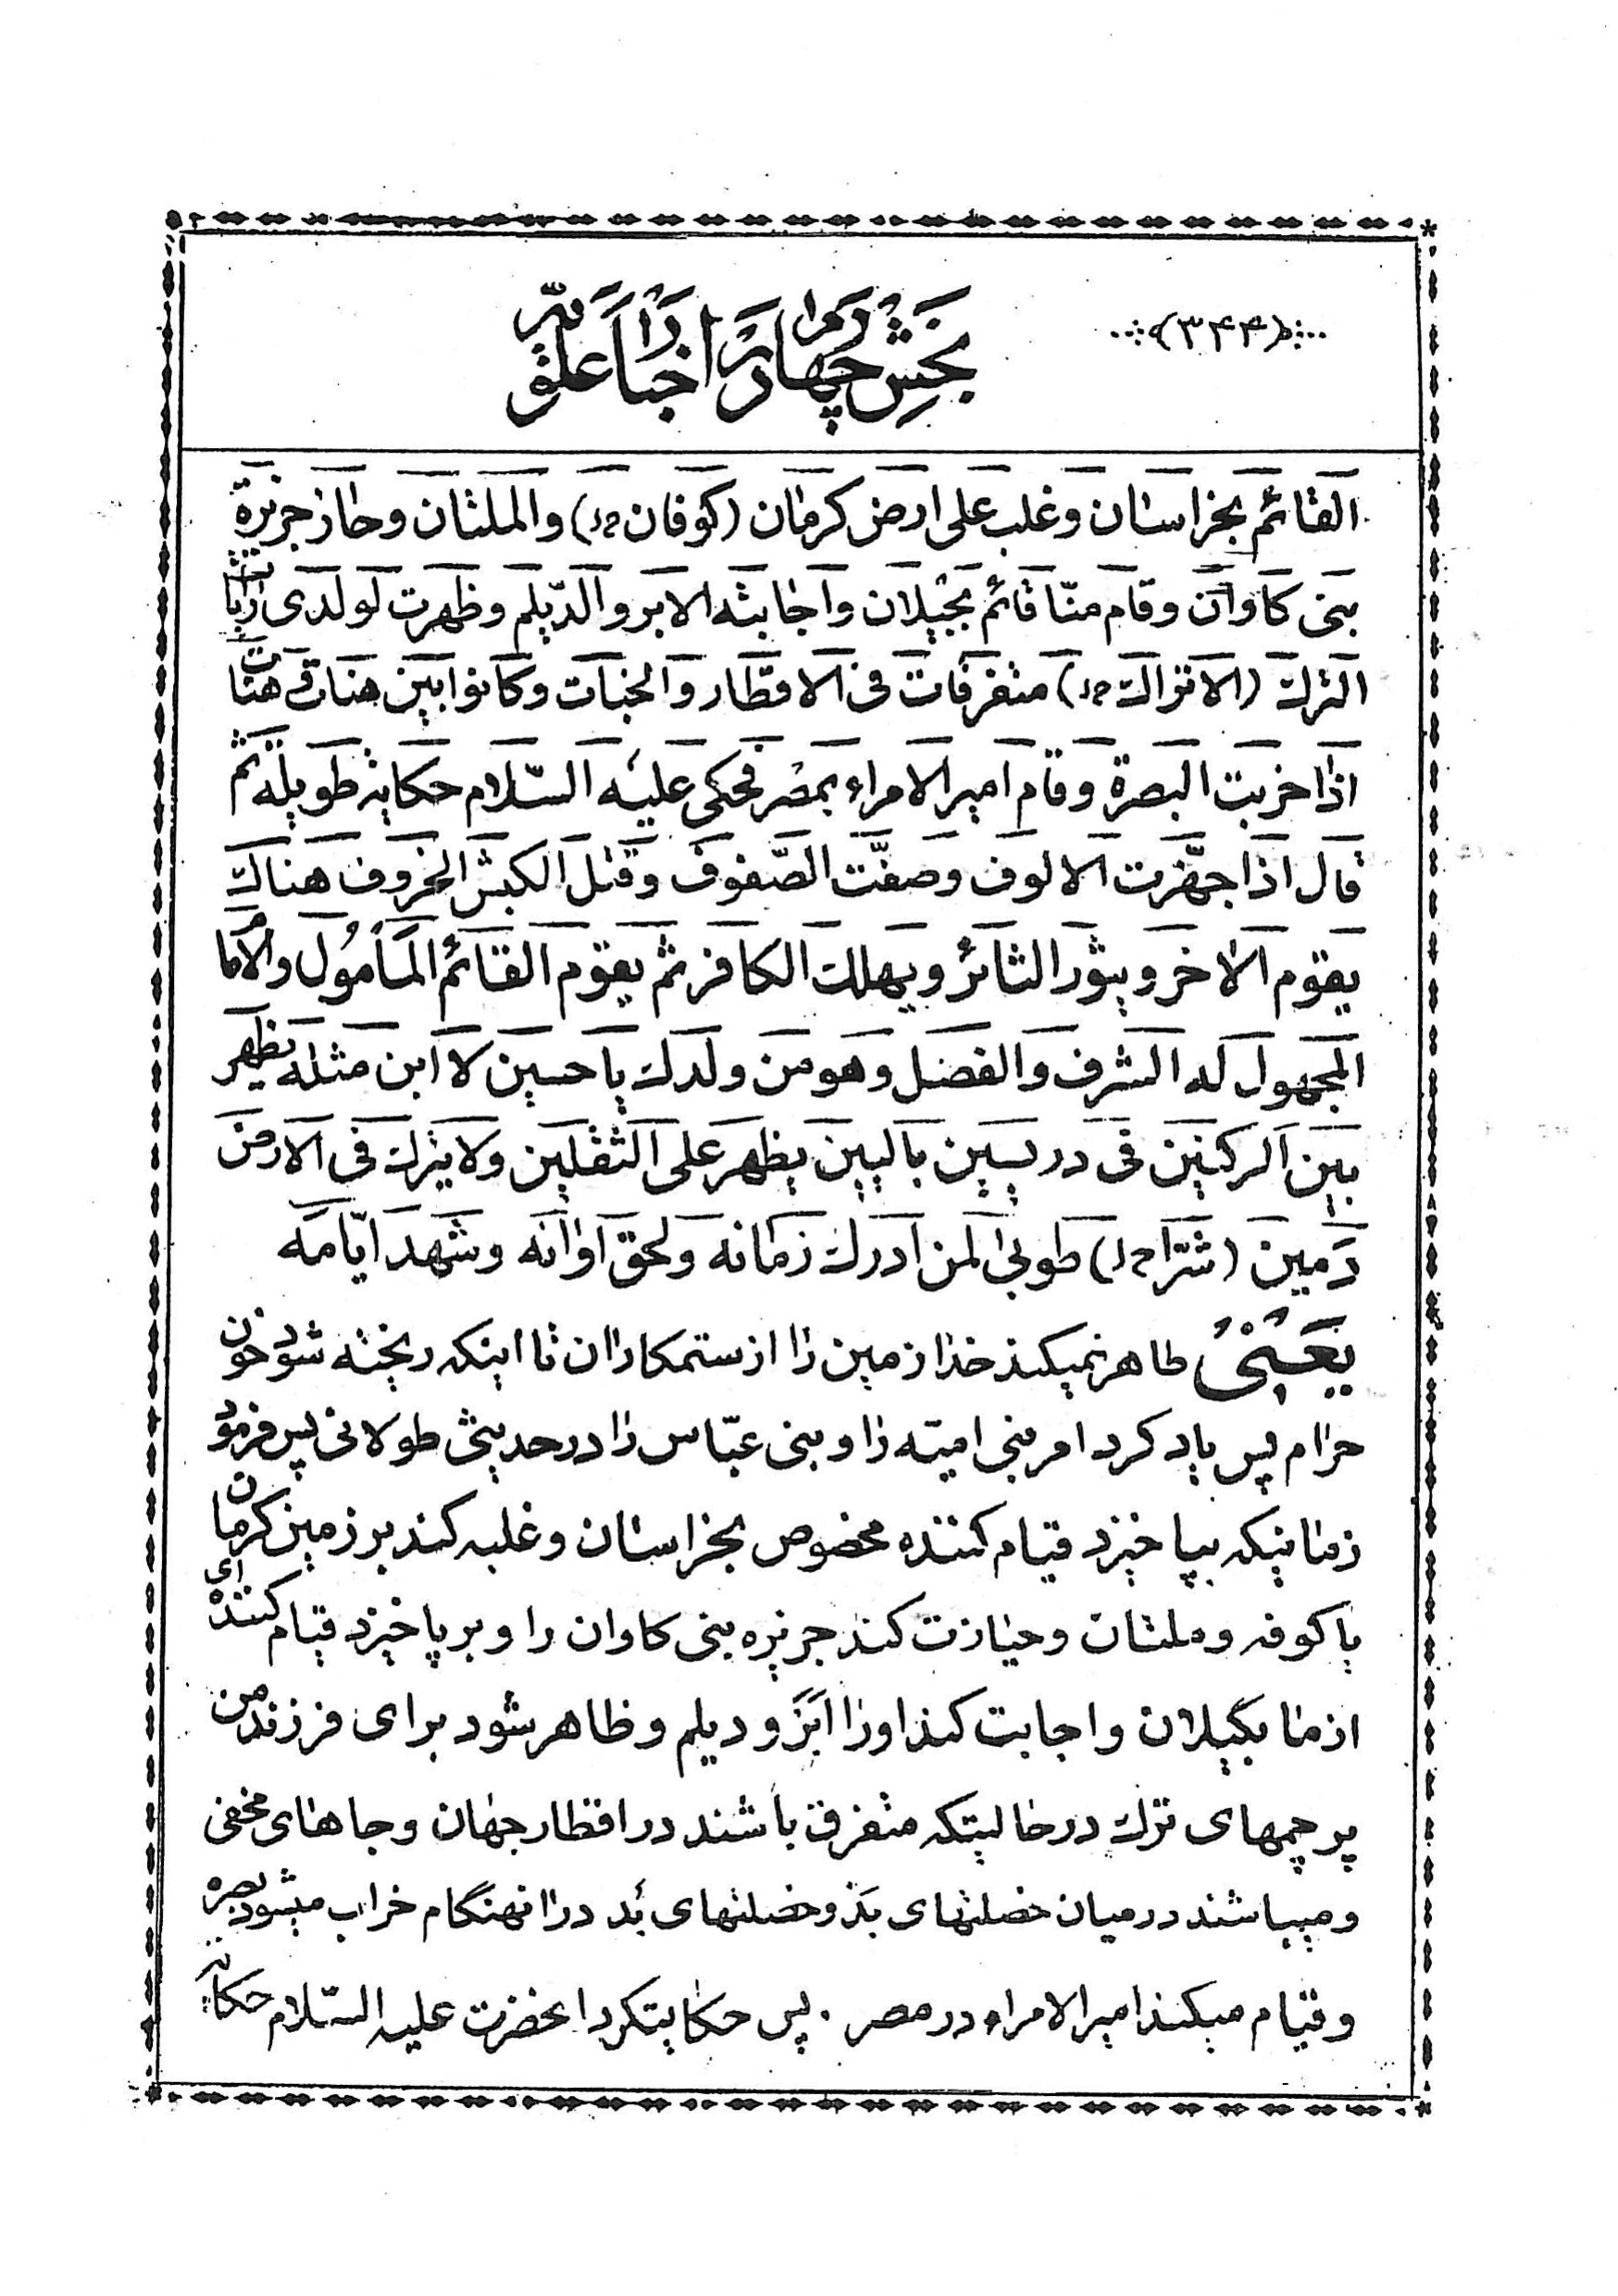 (۳۴۴)
بخش چهارم در اخبار علویه
القائم بخراسان وغلب على ارض كرمان (كوفان خ‌ل) والملتان وحاز جزيرة
بنى كاوان وقام منّا قائم بجيلان واجابته الابر والدّيلم وظهرت لولدى رايات
الترك (الاتراك خ‌ل) متفرقات فى الاقطار والجنبات وكانوا بين هنات وهنات
اذا خربت البصرة وقام امير الامراء بمصر فحكى عليه السّلام حكاية طويلة ثم
قال اذا جهّزت الالوف وصفّت الصّفوف وقتل الكبش الخروف هناك
يقوم الاخر ويثور الثائر ويهلك الكافر ثم يقوم القائم المأمول والامام
المجهول له الشرف والفضل وهو من ولدك يا حسين لا ابن مثله يظهر
بين الركنين فى دريسين باليين يظهر على الثقلين ولا يترك فى الارض
دمين (شترا خ‌ل) طوبى لمن ادرك زمانه ولحق اوانه وشهد ايّامه
يعنى طاهر نمیکند خدا زمین را از ستمکاران تا اینکه ریخته شود خون
حرام پس یاد کرد امر بنی امیّه را و بنی عبّاس را در حدیثی طولانی پس فرمود
زمانیکه بپا خیزد قیام کننده مخصوص بخراسان و غلبه کند بر زمین کرمان
یا کوفه و ملتان و حیازت کند جزیره بنی کاوان را و برپا خیزد قیام کننده‌ای
از ما بگیلان و اجابت کند او را ابَرَ و دیلم و ظاهر شود برای فرزند من
پرچمهای ترک در حالیتکه متفرق باشند در اقطار جهان و جاهای مخفی
و میباشند در میان خصلتهای بد و خصلتهای بد در انهنگام خراب میشود بصره
و قیام میکند امیر الامراء در مصر . پس حکایتکرد انحضرت علیه السّلام حکایة